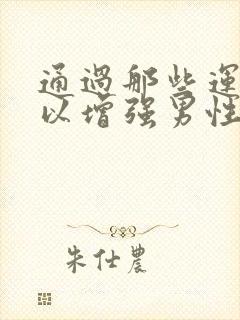 通過那些運
以增强男性
朱仕農